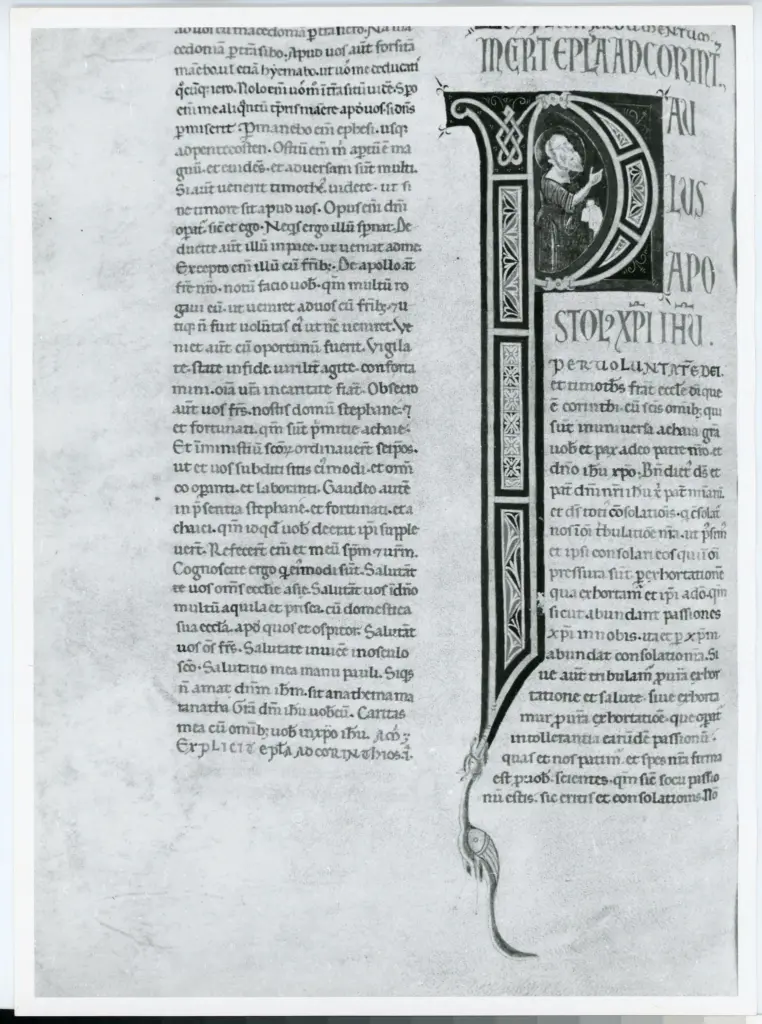 ad uos cū macedoniā ptransiero. Nā ma
cedoniā ptrāsibo. Apud uos aūt forsitā
manebo. ul etiā hyemabo. ut uos me deducati
q̄cūq; iero. Nolo eni uos m̄ itrāsitu uidē. Spo
eni me aliquātū tp̄ris manere apd uos. si dn̄s
pmiserit. Pmanebo eni ephesi. usq;
ad pentecosten. Ostiū eni m apertū ē ma
gnū. et euidēs. et aduersarii sūt multi.
Si aūt uenerit timothe. uidete. ut si
ne timore sit apud uos. Opus eni dn̄i
opat̄. sic et ego. Neq̄s ergo illū spnat. De
ducite aūt illū in pace. ut ueniat ad me.
Expecto eni illū cū frib;. De apollo aūt
fr̄e nr̄o. notū facio uob. qm̄ multū ro
gaui eū. ut ueniret ad uos cū frib;. ⁊ u
tiq; n̄ fuit uolūtas ei ut nc̄ ueniret. Ve
niet aūt cū oportunū fuerit. Vigila
te. state in fide. uirilit̄ agite. conforta
mini. oīa urā in caritate fiat. Obsecro
aūt uos frs̄. nostis domū stephane. ⁊
et fortunati. qm̄ sūt pmitie achaie.
Et in ministiū scōꝝ ordinauert̄ seipos.
ut et uos subditi sitis ei modi. et omī
co opanti. et laboranti. Gaudeo aute
in psentia stephane. et fortunati. et a
chaici. qm̄ id qd uob deerat ipi supple
uert̄. Refecert̄ eni et meū spm̄ ⁊ urm̄.
Cognoscite ergo q ei modi sūt. Salutāt
te uos oms̄ ecclie asie. Salutāt uos idn̄o
multū aquila et prisca. cū domestica
sua eccla. apd quos et ospitor. Salutāt
uos ōs frs̄. Salutate inuicē in osculo
scō. Salutatio mea manu pauli. Siqs
n̄ amat dnm̄ ihm̄. sit anathema ma
ranatha. Grā dn̄i ihu uobcū. Caritas
mea cū omib; uob inxpo ihu. am̄.
Explicit epl̄a ad corinthios .i.
INCIPIT EPLA AD CORINT.
PAU
LUS
APO
STOLꝰ XPI IHU.
PER UOLUNTATĒ DEI.
et timothꝰs frat̄ eccle di que
ē corinthi. cū scīs omib; qui
sūt in uniuersa achaia. grā
uob et pax adeo patre nr̄o. et
dn̄o ihu xpo. Bn̄dict̄ ds̄ et
pat̄ dn̄i nr̄i ihu x̄. pat̄ miarū.
et ds̄ toti cōsolationis. q cōsolat̄
nos ī oī tbulatiōe nr̄a. ut psim̄
et ipsi consolari eos qui ī oī
pressura sūt. p exhortationē
qua exhortam̄ et ipi ado. qm̄
sicut abundant passiones
xpi in nobis. ita et p xpm̄
abundat consolatio nr̄a. Si
ue aūt tribulam̄. p urā exhor
tatione et salute. siue exhorta
mur. p urā exhortatiōe. que opat̄
in tollerantia earūdē passionū.
quas et nos patim̄. et spes nr̄a firma
est p uob. scientes. qm̄ sic socii passio
nū estis. sic eritis et consolationis. Nō